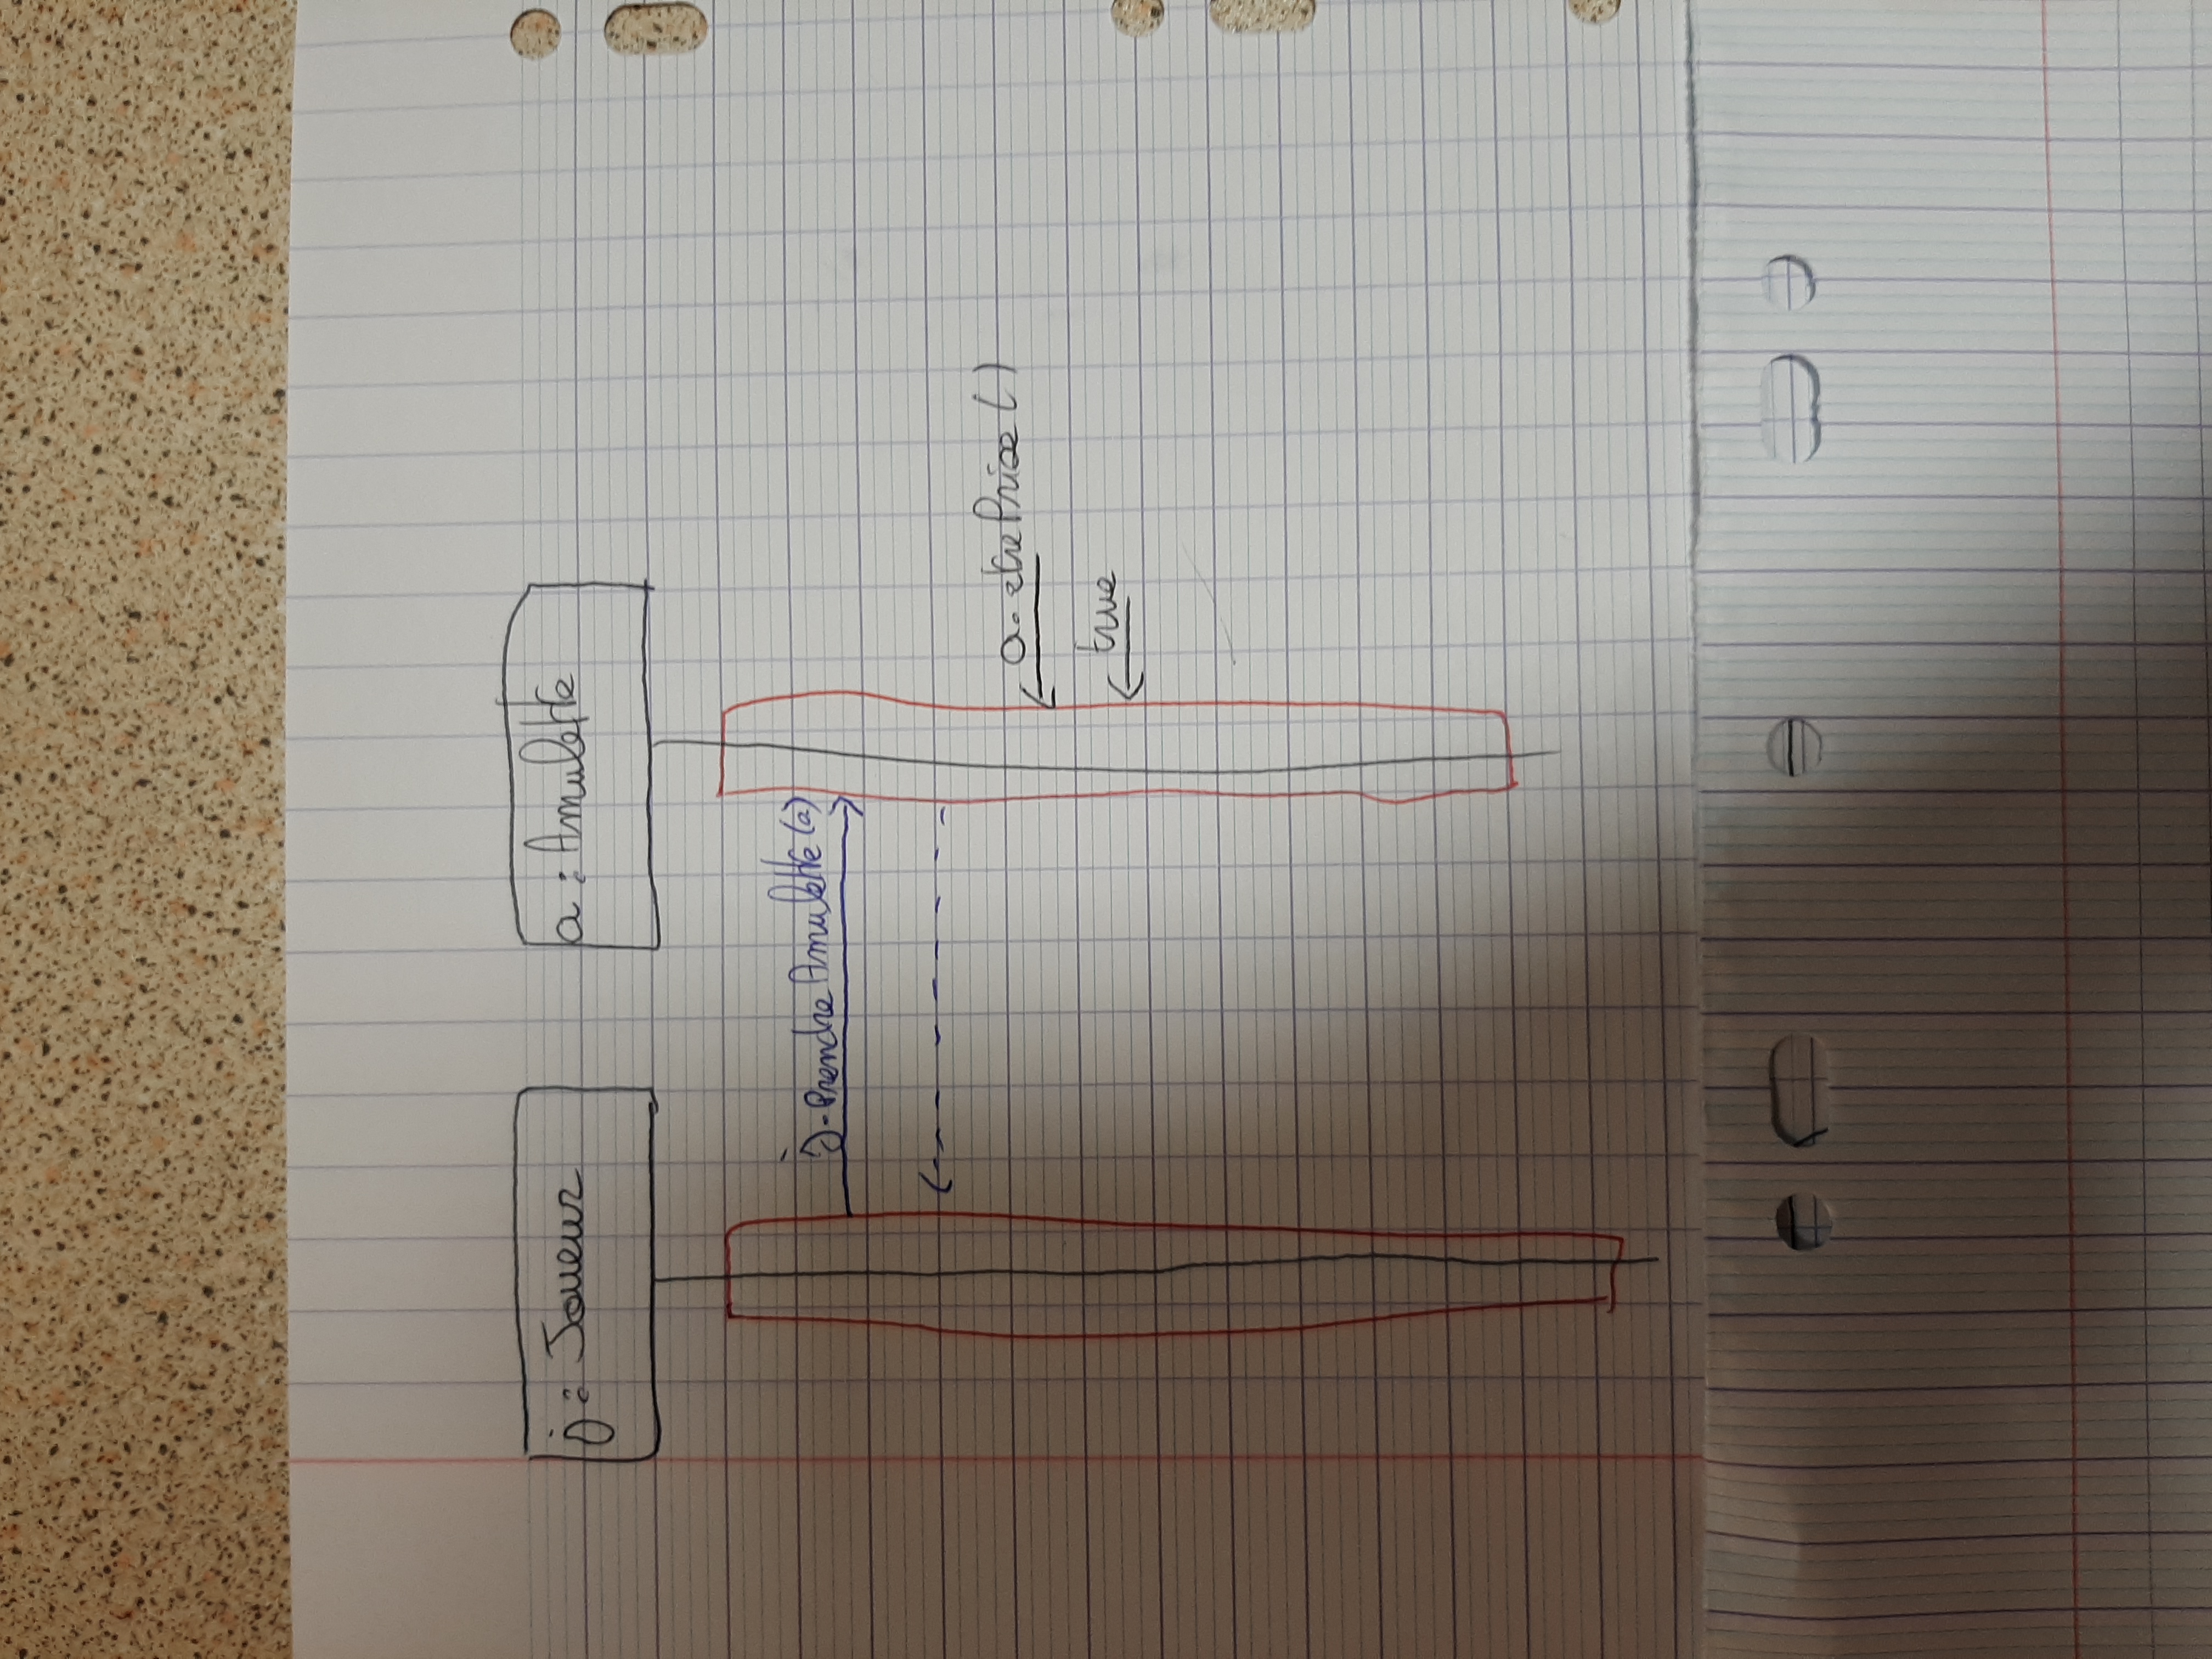 j : Joueur
a : Amulette
j.prendre Amulette (a)
a.etrePrise ( )
true